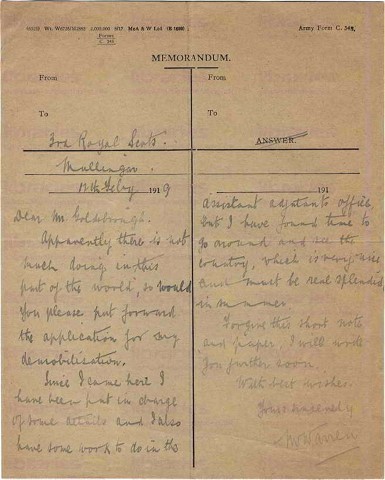 Forms
C. 348.
Army Form C. 348.
MEMORANDUM.
From
To
3rd Royal Scots.
Mullingar.
12th Feby 1919
Dear Mr Goldsbrough.
Apparently there is not
much doing in this
part of the world, so would
you please put forward
the application for my
demobilication.
Since I came here I
have been put in charge
of some details and I also
have some work to do in the
From
To
ANSWER.
191
assistant adjutants office,
but I have found time to
go around and see the
country, which is very nice
and must be real splendid
in summer.
Forgive this short note
and paper, I will write
you further soon.
With best wishes.
Yours sincerely